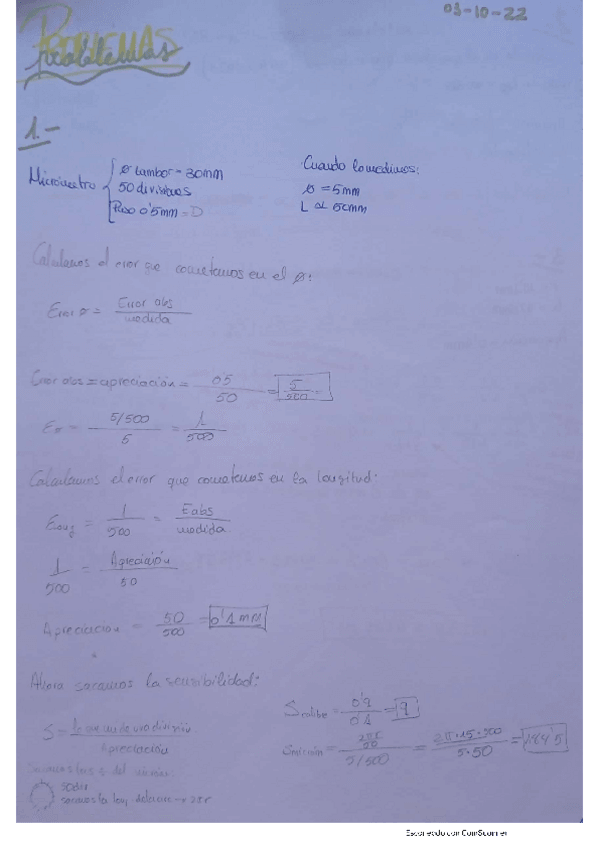 03-10-22
PROBLEMAS
problemas
1.-
Micrómetro { ø tambor = 30mm
50 divisiones
Paso 0'5mm = D
Cuando lo medimos:
ø = 5mm
L ≃ 5cmm
Calculamos el error que cometemos en el ø:
Error ø = Error abs / medida
Error abs = apreciación = 05 / 50 = 5 / 500
Eø = 5/500 / 5 = 1 / 500
Calculamos el error que cometemos en la longitud:
Elong = 1 / 500 = Eabs / medida
1 / 500 = Apreciación / 50
Apreciación = 50 / 500 = 0'1 mm
Ahora sacamos la sensibilidad:
S = / Apreciación
S calibre = 0'9 / 0'1 = 9
= 2πr / 50 / 5/500 = 2π·15·500 / 5·50 = 188'5
50 div
sacamos la long → 2πr
Escaneado con CamScanner